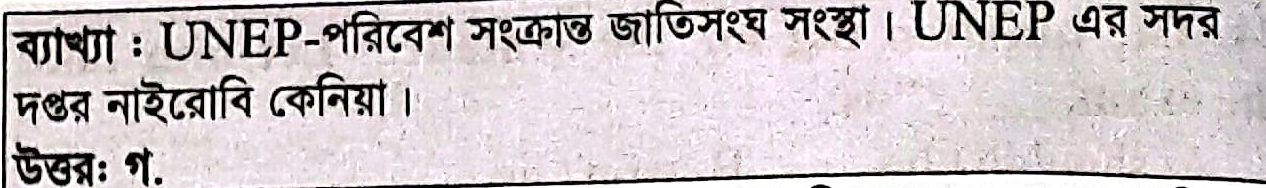 ব্যাখ্যা : UNEP-পরিবেশ সংক্রান্ত জাতিসংঘ সংস্থা। UNEP এর সদর
দপ্তর নাইরোবি কেনিয়া।
উত্তরঃ গ.